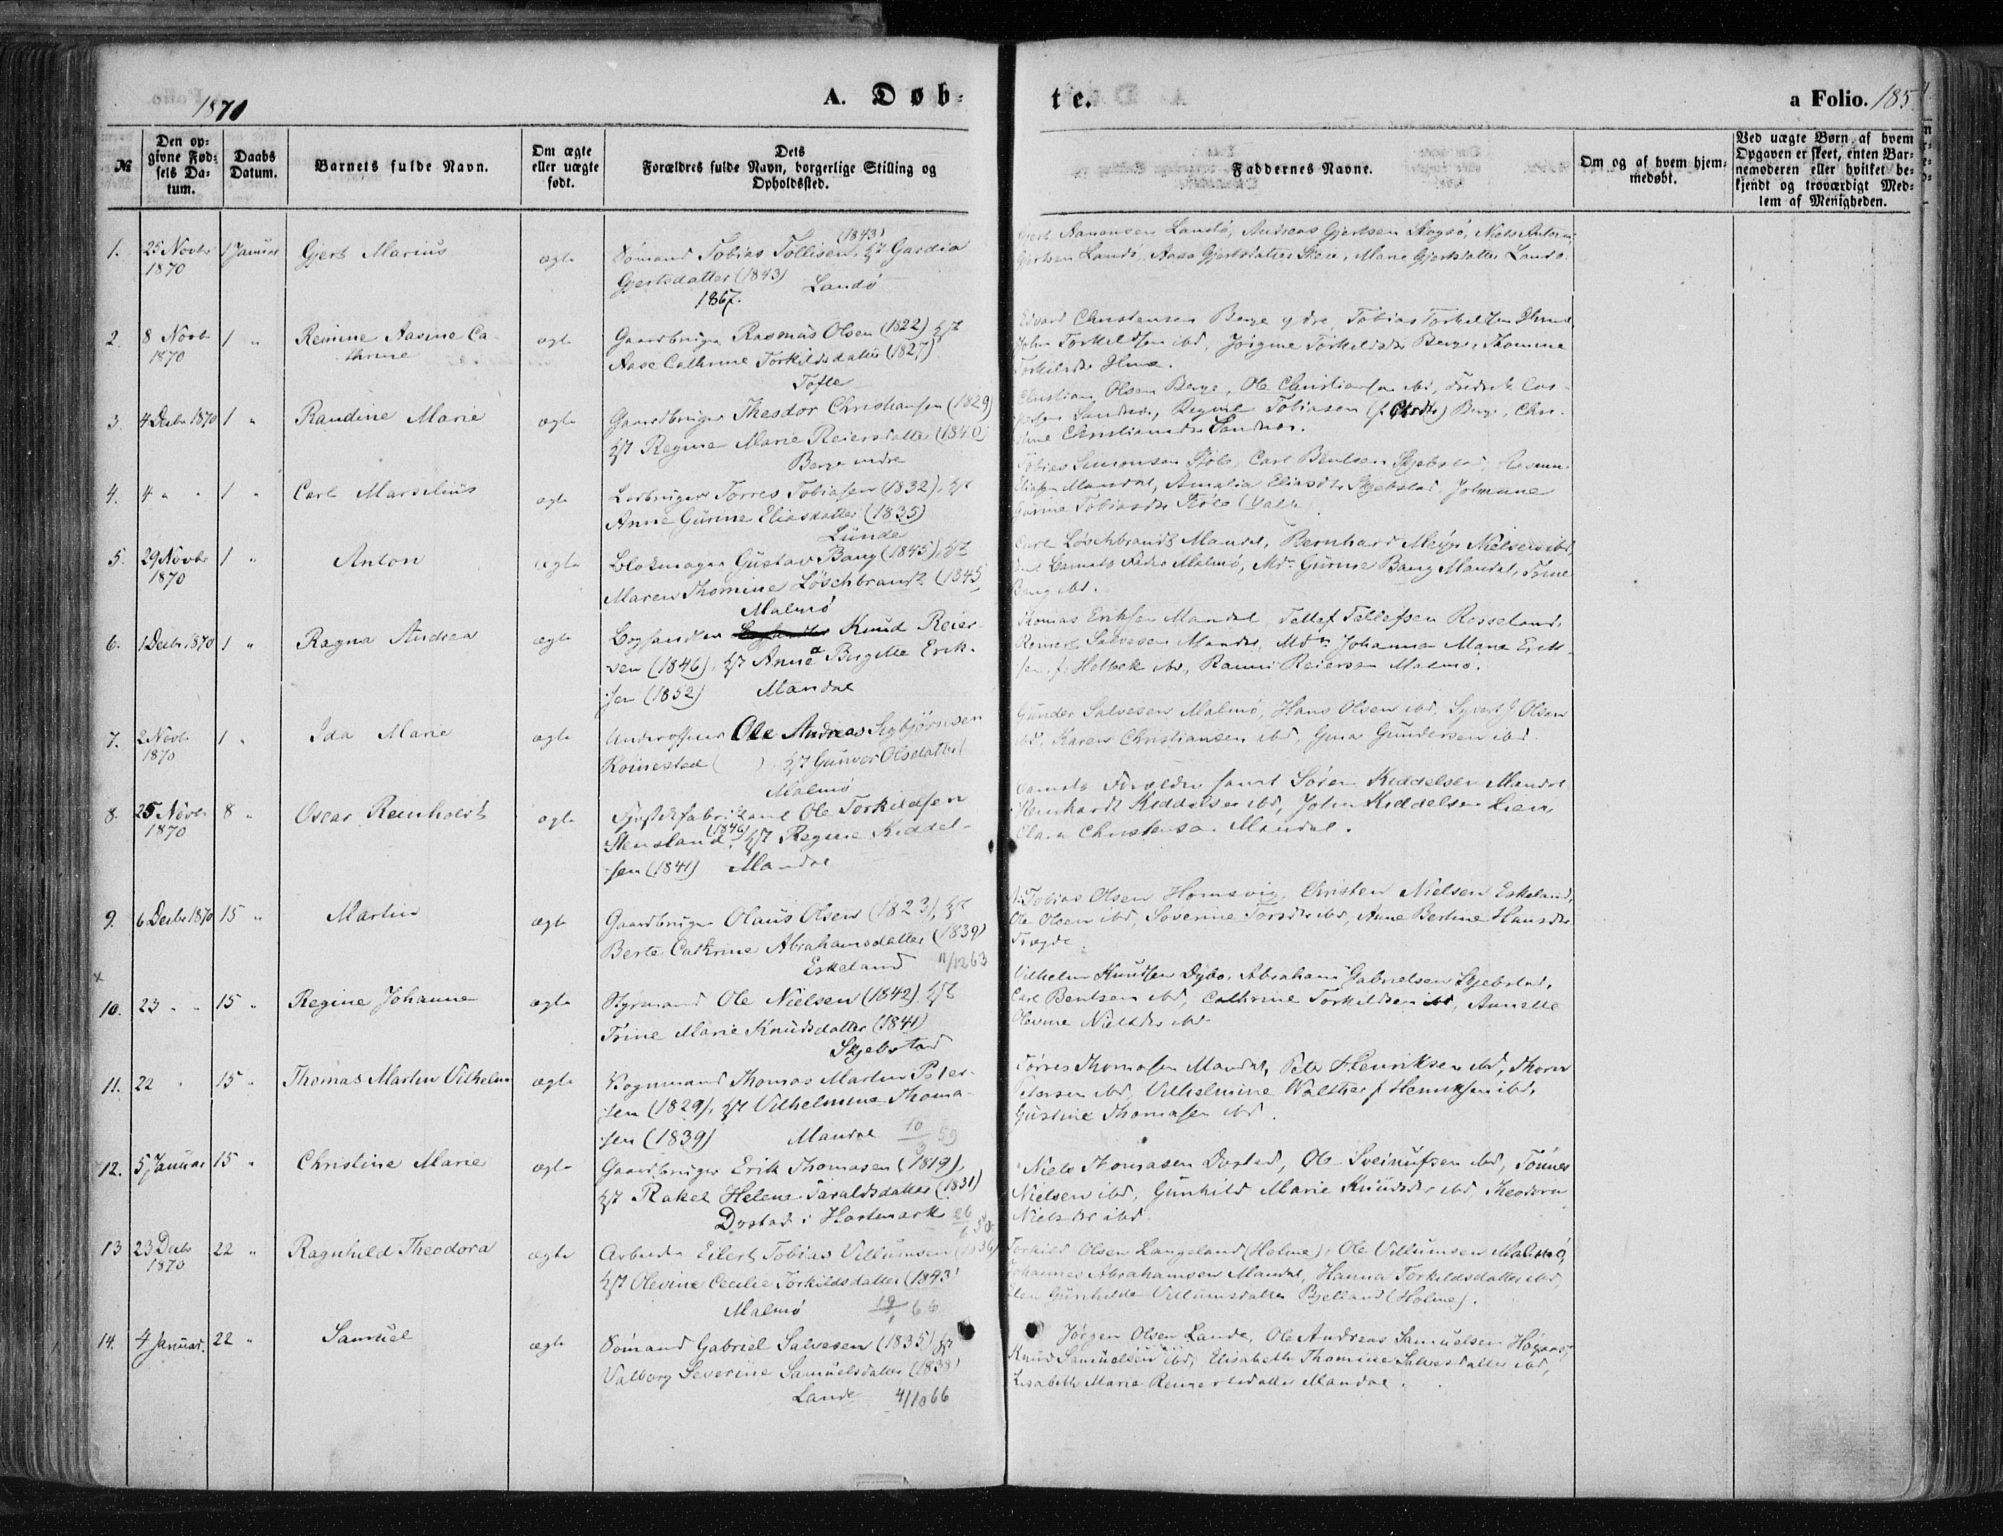 1871
A. Døb-
te.
a Folio. 185
№
Den op-
givne Fød-
sels Da-
tum.
Daabs
Datum.
Barnets fulde Navn.
Om ægte
eller uægte
født.
Dets
Forældres fulde Navn, borgerlige Stilling og
Opholdssted.
Faddernes Navne.
Om og af hvem hjem-
medøbt.
Ved uægte Børn, af hvem
Opgaven er skeet, enten Bar-
nemoderen eller hvilket be-
kjendt og troværdigt Med-
lem af Menigheden.
1. 25 Novbr 1870 1 Januar Gjert Marius ægte
Sømand Tobias Tollisen (1843), Hst Gardia
Gjertsdatter (1843) Landø
1867.
Gjert Aanonsen Landø, Andreas Gjertsen Skogsø, Niels Anton
Gjertsen Landø, Aase Gjertsdatter, Marie Gjertsdatter Landø.
2. 8 Novb 1870 1 " Reinine Aasine Ca-
thrine ægte
Gaardbruger Rasmus Olsen (1822) Hst
Aase Cathrine Torkildsdatter (1827)
Tofte
Edvard Christensen Berge ydre, Tobias Torkildsen
John Torkildsen ibd, Jørgine Torkildsdr Berge, Thomine
Torkildsdr
3. 4 Decbr 1870 1 " Randine Marie ægte
Gaardbruger Theodor Christiansen (1829)
Hst Regine Marie Reiersdatter (1840)
Berge indre
Christian Olsen Berge, Ole Christiansen ibd, Fredrik Cas-
Regine Tobiasen Berge, Chri-
stine Christiansdr Sandnæs.
4. 4 " " 1 " Carl Marselius ægte
Torres Tobiasen (1832), Hst
Anne Gurine Eliasdatter (1835)
Lunde
Tobias Simonsen, Carl Bentsen Skjebstad,
Eliasen Mandal, Amalia Eliasdtr Skjebstad,
Gurine Tobiasdr
5. 29 Novbr 1870 1 " Anton ægte
Blokmager Gustav Bang (1845), Hst
Maren Thomine Löschbrandt (1845
Malmø
Carl Löschbrandt Mandal, Bernhard Nielsen ibd,
Malmø, Md. Gurine Bang Mandal, Trine
Bang ibd.
6. 1 Decbr 1870 1 " Ragna Andrea ægte
Knud Reier-
sen (1846), Hst Anna Birgitte Erik-
sen (1852) Mandal
Thomas Eriksen Mandal, Tellef Tellefsen Rosseland,
Reinert Salvesen Mandal, Md. Johanna Marie Erik-
sen f. Holbek ibd, Reiersen Malmø.
7. 2 Novbr 1870 1 " Ida Marie ægte
Underofficer Ole Andreas Sigbjørnsen
Roinestad ( ). Hst Gunvor Olsdatter (
Malmø
Gunder Salvesen Malmø, Hans Olsen ibd, Syvert J Olsen
ibd, Karen Christiansen ibd, Gina Gundersen ibd.
8. 25 Novbr 1870 8 " Oscar Reinholdt ægte
Ole Torkildsen
Stensland (1846), Hst Regine Kiddel-
sen (1841) Mandal
Samtl Forældre samt Søren Kiddelsen Mandal
Reinhardt Kiddelsen ibd, John Kiddelsen Lien,
Clara Christensen Mandal.
9. 6 Decbr 1870 15 " Martin ægte
Gaardbruger Olaus Olsen (1823), Hst
Berte Cathrine Abrahamsdatter (1839)
Eskeland 11/12 63
Tobias Olsen Homsvig, Christen Nielsen Eskeland,
Ole Olsen ibd, Severine Torsdr ibd, Anne Bertine Hansdr
Tregde.
x
10. 23 " " 15 " Regine Johanne ægte
Styrmand Ole Nielsen (1842), Hst
Trine Marie Knudsdatter (1841)
Skjebstad
Vilhelm Knudsen Dybo, Abraham Gabrielsen Skjebstad,
Carl Bentsen ibd, Cathrine Torkildsen ibd, Annette
Olevine Nielsdr ibd
11. 22 " 15 " Thomas Martin Vilhelm ægte
Vognmand Thomas Martin Peter-
sen (1829), Hst Vilhelmine Thoma-
sen (1839) Mandal 10/3 59
Tørres Thomasen Mandal, Peter Henriksen ibd, Thora
Petersen ibd, Vilhelmine Walther f Henriksen ibd,
Gustine Thomasen ibd.
12. 5 Januar 15 " Christine Marie ægte
Gaardbruger Erik Thomasen (1819),
Hst Rakel Helene Taraldsdatter (1831)
Dystad i Hartmark 26/6 50
Niels Thomasen Dystad, Ole Sveinufsen ibd, Tönnes
Nielsen ibd, Gunhild Marie Knudsdr ibd, Theodora
Nielsdr ibd.
13 23 Decbr 1870 22 " Ragnhild Theodora ægte
Arbeider Eilert Tobias Villumsen (1836)
Hst Olevine Cecilie Torkildsdatter (1843
Malmø 19/1 66
Torkild Olsen Langeland (Holme), Ole Villumsen Malmø,
Johannes Abrahamsen Mandal, Hanna Torkildsdatter ibd,
Gunhilde Villumsdatter Bjelland (Holme).
14. 4 Januar. 22 " Samuel ægte
Sømand Gabriel Salvesen (1835) Hst
Valborg Severine Samuelsdatter (1838)
Lande 4/10 66
Jørgen Olsen Lande, Ole Andreas Samuelsen
Knud Samuelsen ibd, Elisabeth Thomine Salvesdatter ibd,
Lisabeth Marie Reinertsdatter Mandal.